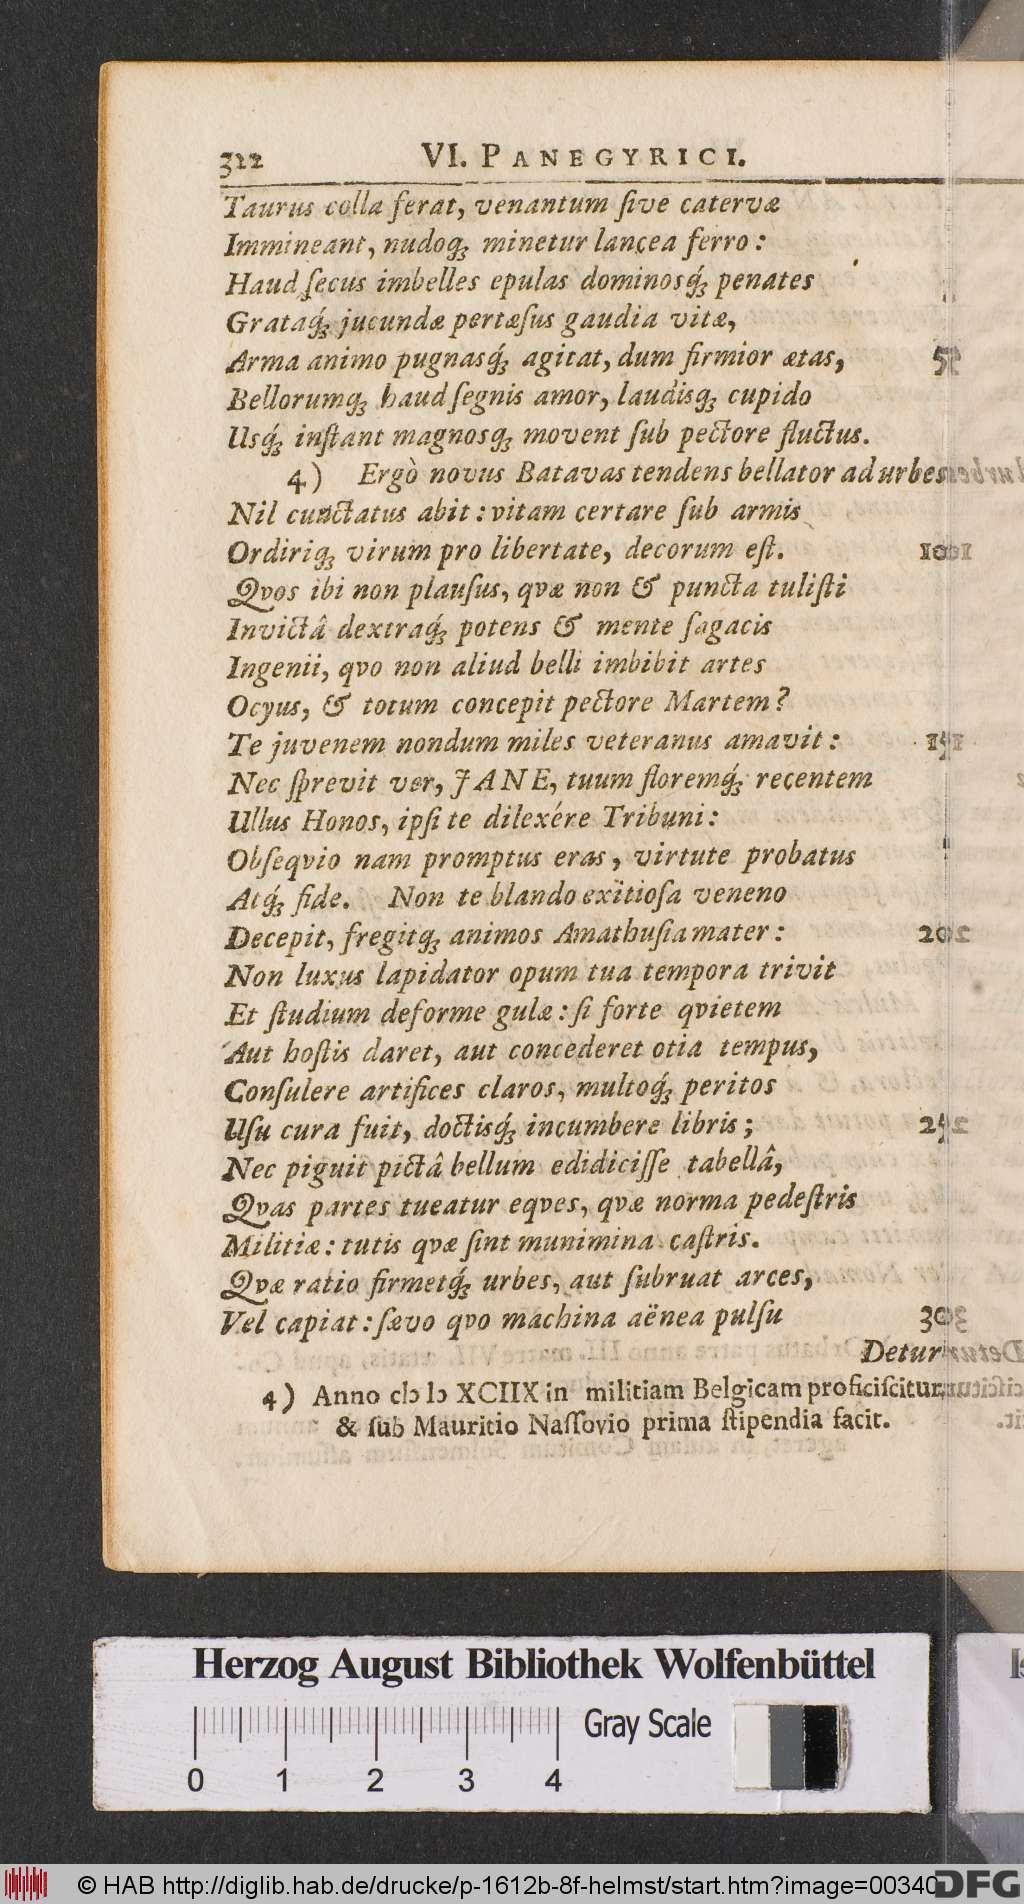 312 VI. PANEGYRICI.
Taurus colla ferat, venantum ſive catervæ
Immineant, nudoq́ꝫ minetur lancea ferro:
Haud ſecus imbelles epulas dominosq́ꝫ penates
Grataq́ꝫ jucundæ pertæſus gaudia vitæ,
Arma animo pugnasq́ꝫ agitat, dum firmior ætas,
Bellorumqꝫ haud ſegnis amor, laudisqꝫ cupido
Usq́ꝫ inſtant magnosqꝫ movent ſub pectore fluctus.
4) Ergò novus Batavas tendens bellator ad urbes
Nil cunctatus abit: vitam certare ſub armis
Ordiriqꝫ virum pro libertate, decorum eſt.
Qvos ibi non plauſus, qvæ non & puncta tuliſti
Invictâ dextraq́ꝫ potens & mente ſagacis
Ingenii, qvo non aliud belli imbibit artes
Ocyus, & totum concepit pectore Martem?
Te juvenem nondum miles veteranus amavit: 15
Nec ſprevit ver, JANE, tuum floremq́ꝫ recentem
Ullus Honos, ipſi te dilexére Tribuni:
Obſeqvio nam promptus eras, virtute probatus
Atq́ꝫ fide. Non te blando exitioſa veneno
Decepit, fregitqꝫ animos Amathuſia mater: 20
Non luxus lapidator opum tua tempora trivit
Et ſtudium deforme gulæ: ſi forte qvietem
Aut hoſtis daret, aut concederet otia tempus,
Conſulere artifices claros, multoq́ꝫ peritos
Uſu cura fuit, doctisq́ꝫ incumbere libris; 25
Nec piguit pictâ bellum edidiciſſe tabellâ,
Qvas partes tueatur eqves, qvæ norma pedeſtris
Militiæ: tutis qvæ ſint munimina caſtris.
Qvæ ratio firmetq́ꝫ urbes, aut ſubruat arces,
Vel capiat: ſævo qvo machina aënea pulſu 30
Detur
4) Anno cIↄ Iↄ XCIIX in militiam Belgicam proficiſcitur
& ſub Mauritio Naſſovio prima ſtipendia facit.
Herzog August Bibliothek Wolfenbüttel
Gray Scale
0 1 2 3 4
© HAB http://diglib.hab.de/drucke/p-1612b-8f-helmst/start.htm?image=00340
DFG